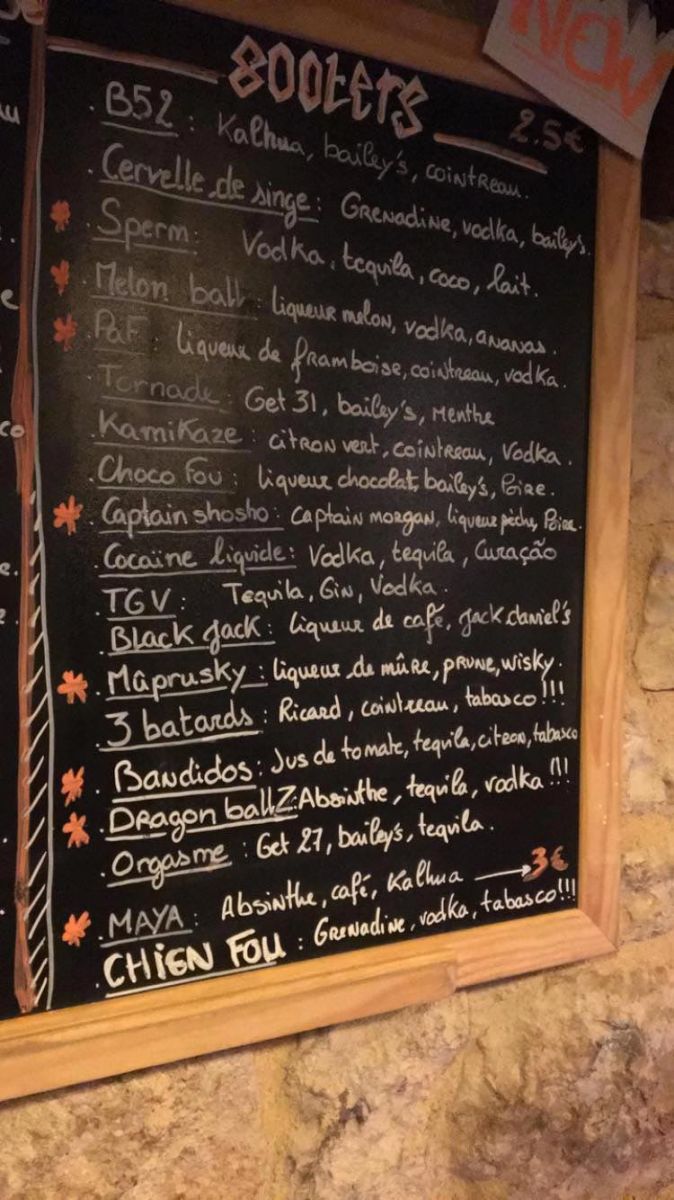 NEW
SOOTERS
2.5€
. B52 : Kalhua, bailey's, cointreau.
. Cervelle de singe : Grenadine, vodka, bailey's.
* . Sperm : Vodka, tequila, coco, lait.
* . Melon ball : liqueur melon, vodka, ananas.
* . PaF : liqueur de framboise, cointreau, vodka.
. Tornade : Get 31, bailey's, Menthe
. Kamikaze : citron vert, cointreau, Vodka.
. Choco Fou : liqueur chocolat, bailey's, Poire.
* . Captain shosho : Captain morgan, liqueur pêche, Poire.
. Cocaïne liquide : Vodka, tequila, Curaçao
. TGV : Tequila, Gin, Vodka.
. Black Jack : liqueur de café, Jack daniel's
* . Mâprusky : liqueur de mûre, prune, wisky.
. 3 batards : Ricard, cointreau, tabasco !!!
* . Bandidos : Jus de tomate, tequila, citron, tabasco
* . Dragon ball Z : Absinthe, tequila, vodka !!!
. Orgasme : Get 27, bailey's, tequila.
* . MAYA : Absinthe, café, Kalhua → 3€
. CHIEN FOU : Grenadine, vodka, tabasco !!!